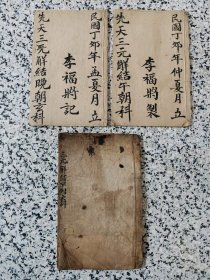 民國丁卯年仲夏月立
李福將製
先天三元解結午朝科
民國丁卯年孟夏月立
李福將記
先天三元解結晚朝全科
三元解結